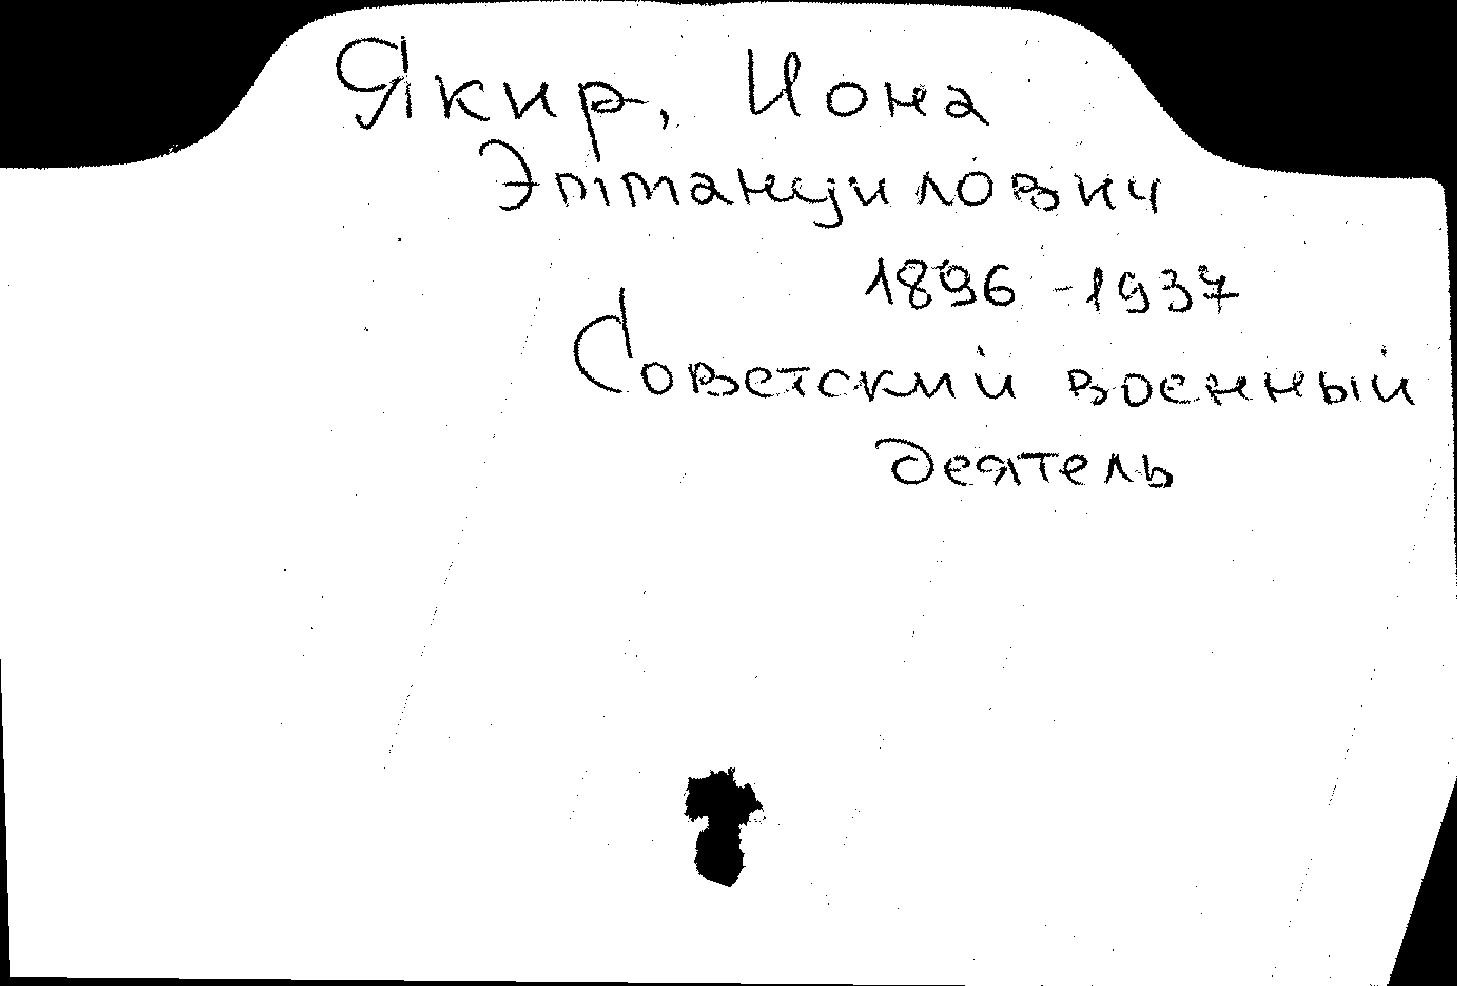 Якир, Иона
Эммануилович
1896-1937
Советский военный
деятель